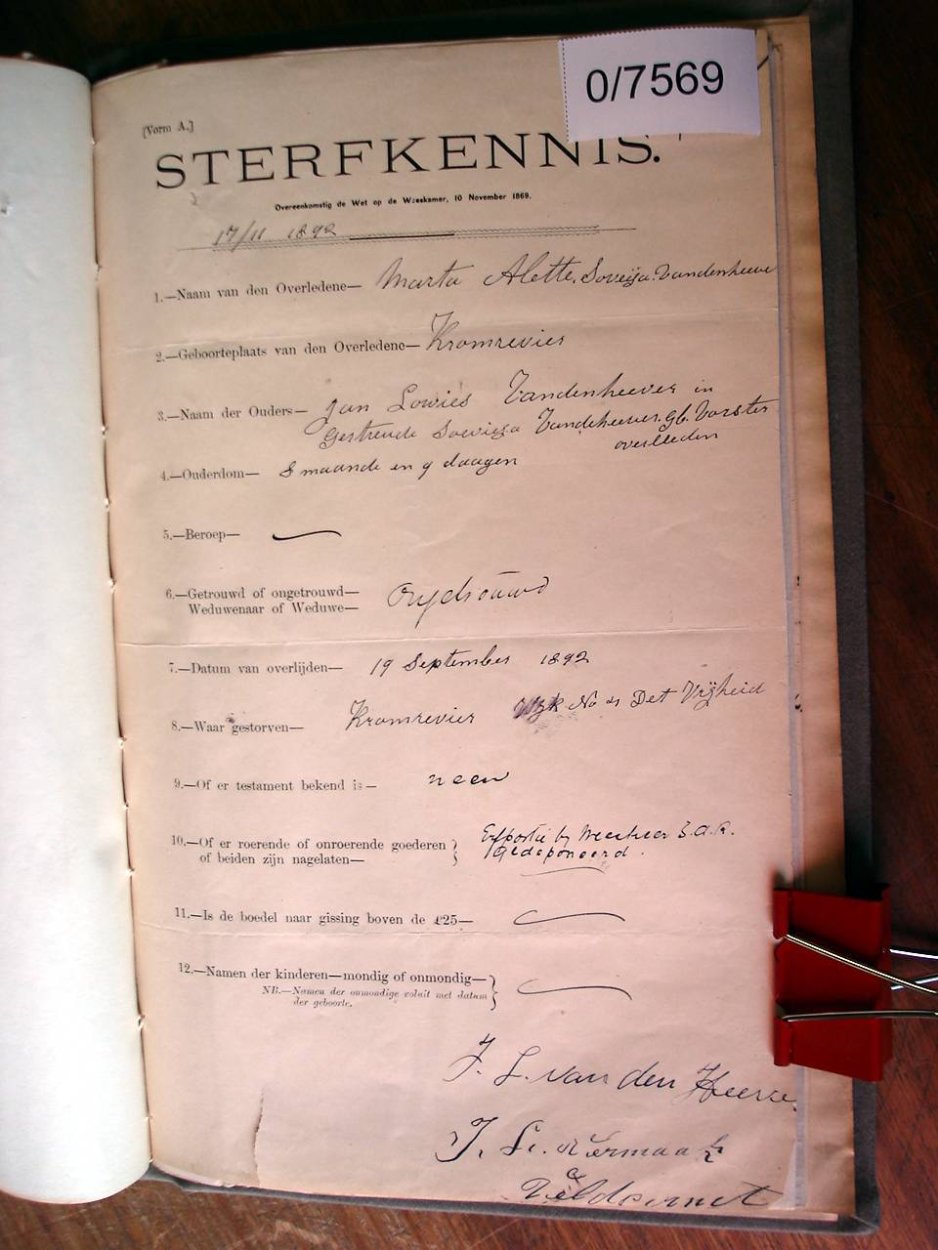 0/7569
[Vorm A.]
STERFKENNIS.
Overeenkomstig de Wet op de Weeskamer, 10 November 1869.
17/11 1892
1.—Naam van den Overledene— Marta Alette Soveija Vandenheever
2.—Geboorteplaats van den Overledene— Kromrevier
3.—Naam der Ouders— Jan Lowies Vandenheever in
Gertreude Soevieja Vandeheever. gb. Vorster
overlleden
4.—Ouderdom— 8 maande en 9 daagen
5.—Beroep—
6.—Getrouwd of ongetrouwd—
Weduwenaar of Weduwe—
7.—Datum van overlijden— 19 September 1892
8.—Waar gestorven— Kromrevier Wyk No 21 Det Vrijheid
9.—Of er testament bekend is— neen
10.—Of er roerende of onroerende goederen } Erfportie by Weesheer Z.A.R.
of beiden zijn nagelaten— Gedeponeerd.
11.—Is de boedel naar gissing boven de £25—
12.—Namen der kinderen—mondig of onmondig—
NB.—Namen der onmondige voluit met datum
der geboorte.
J. L. van den Heever
Veldcornet